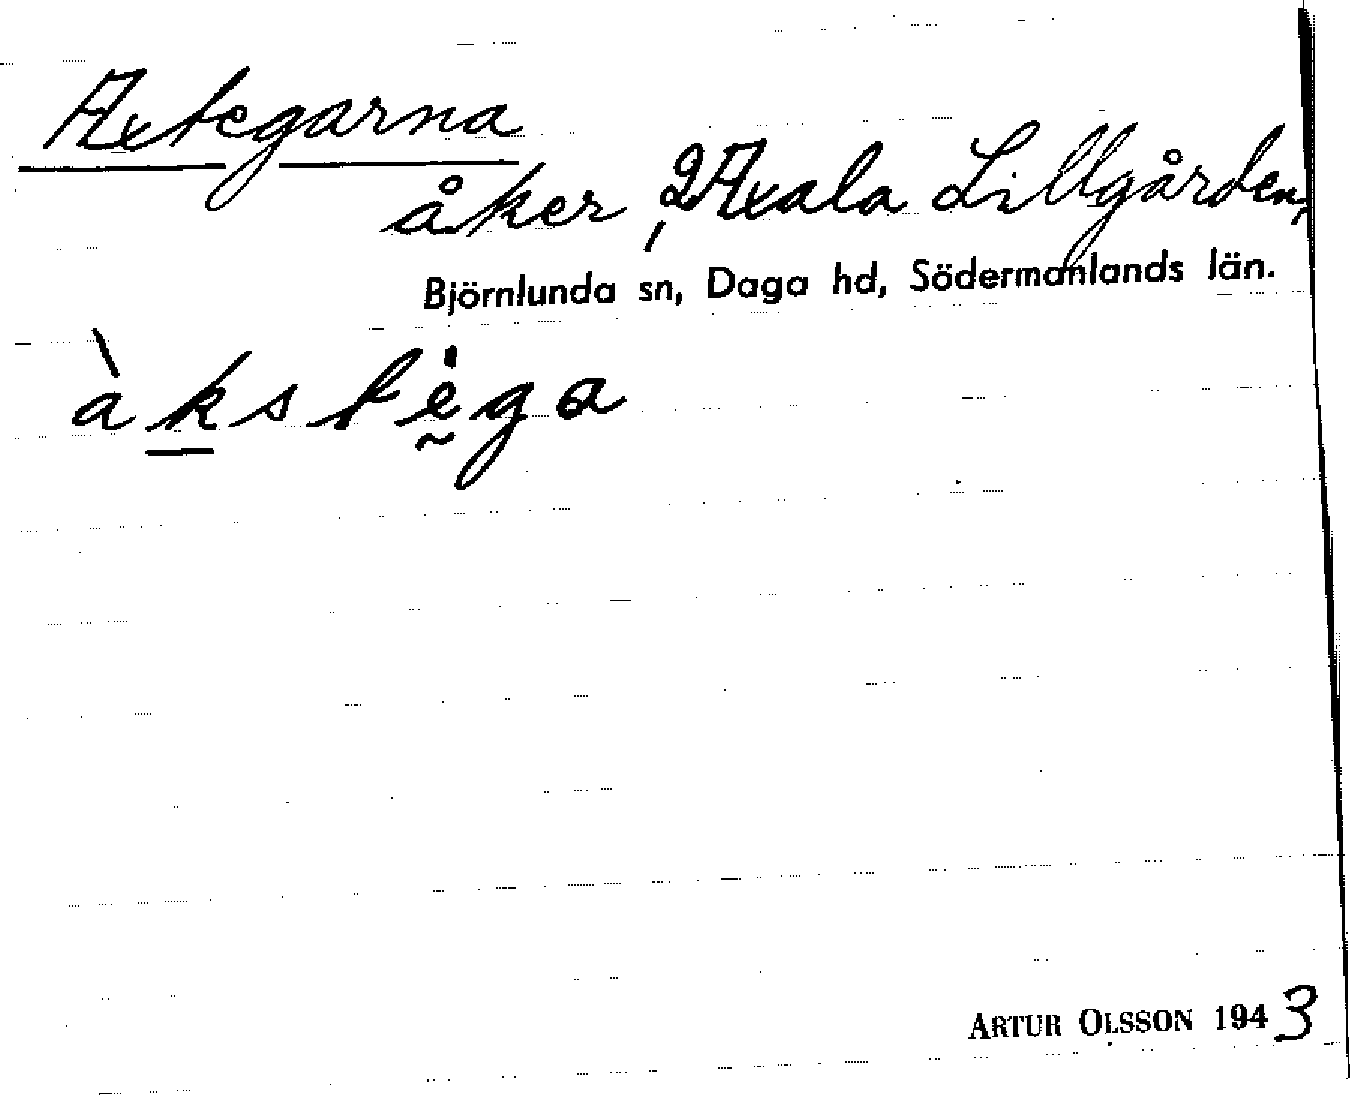 Axtegarna
åker, 2 Axala Lillgården,
Björnlunda sn, Daga hd, Södermanlands län.
àkstega
ARTUR OLSSON 1943